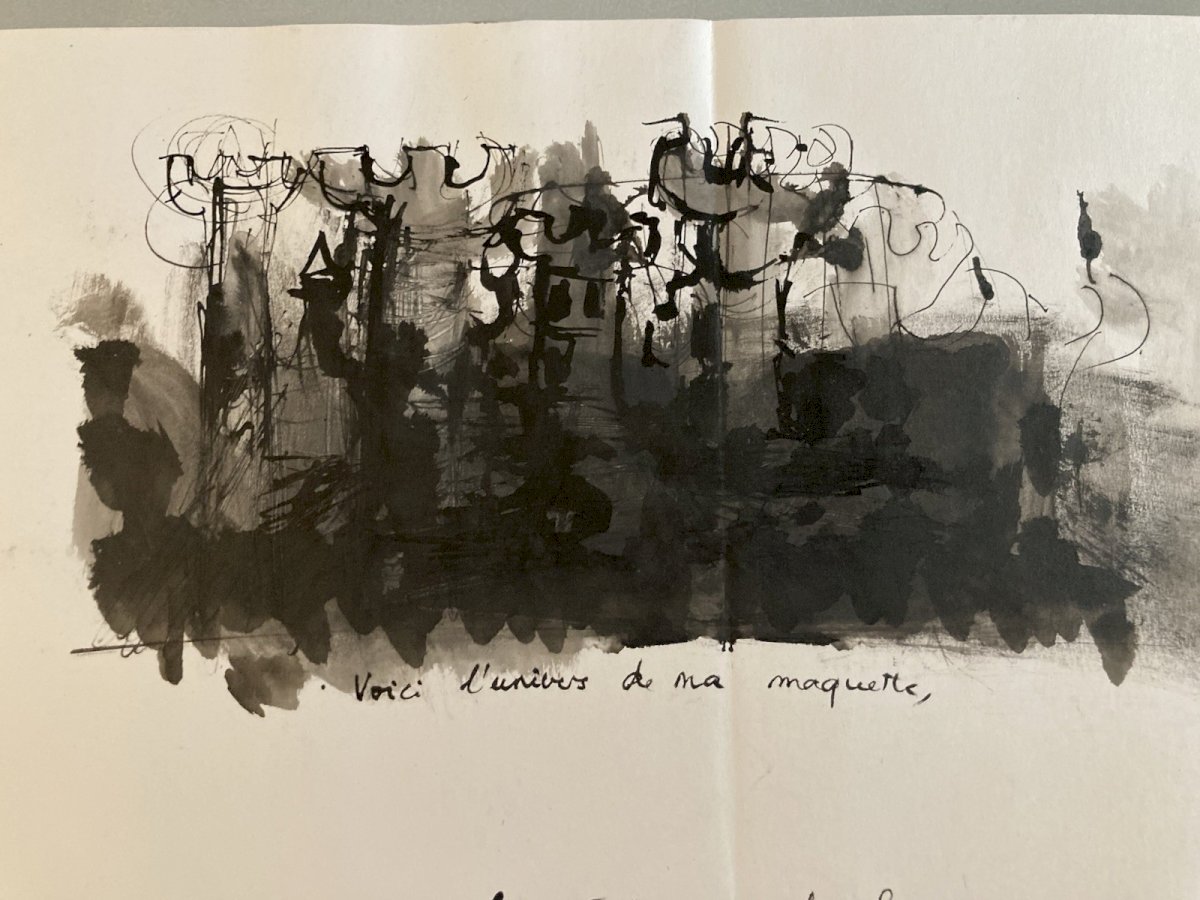 Voici l'univers de ma maquette,